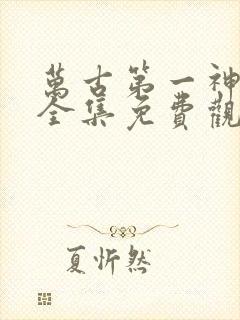 萬古第一神
全集免費觀
夏忻然